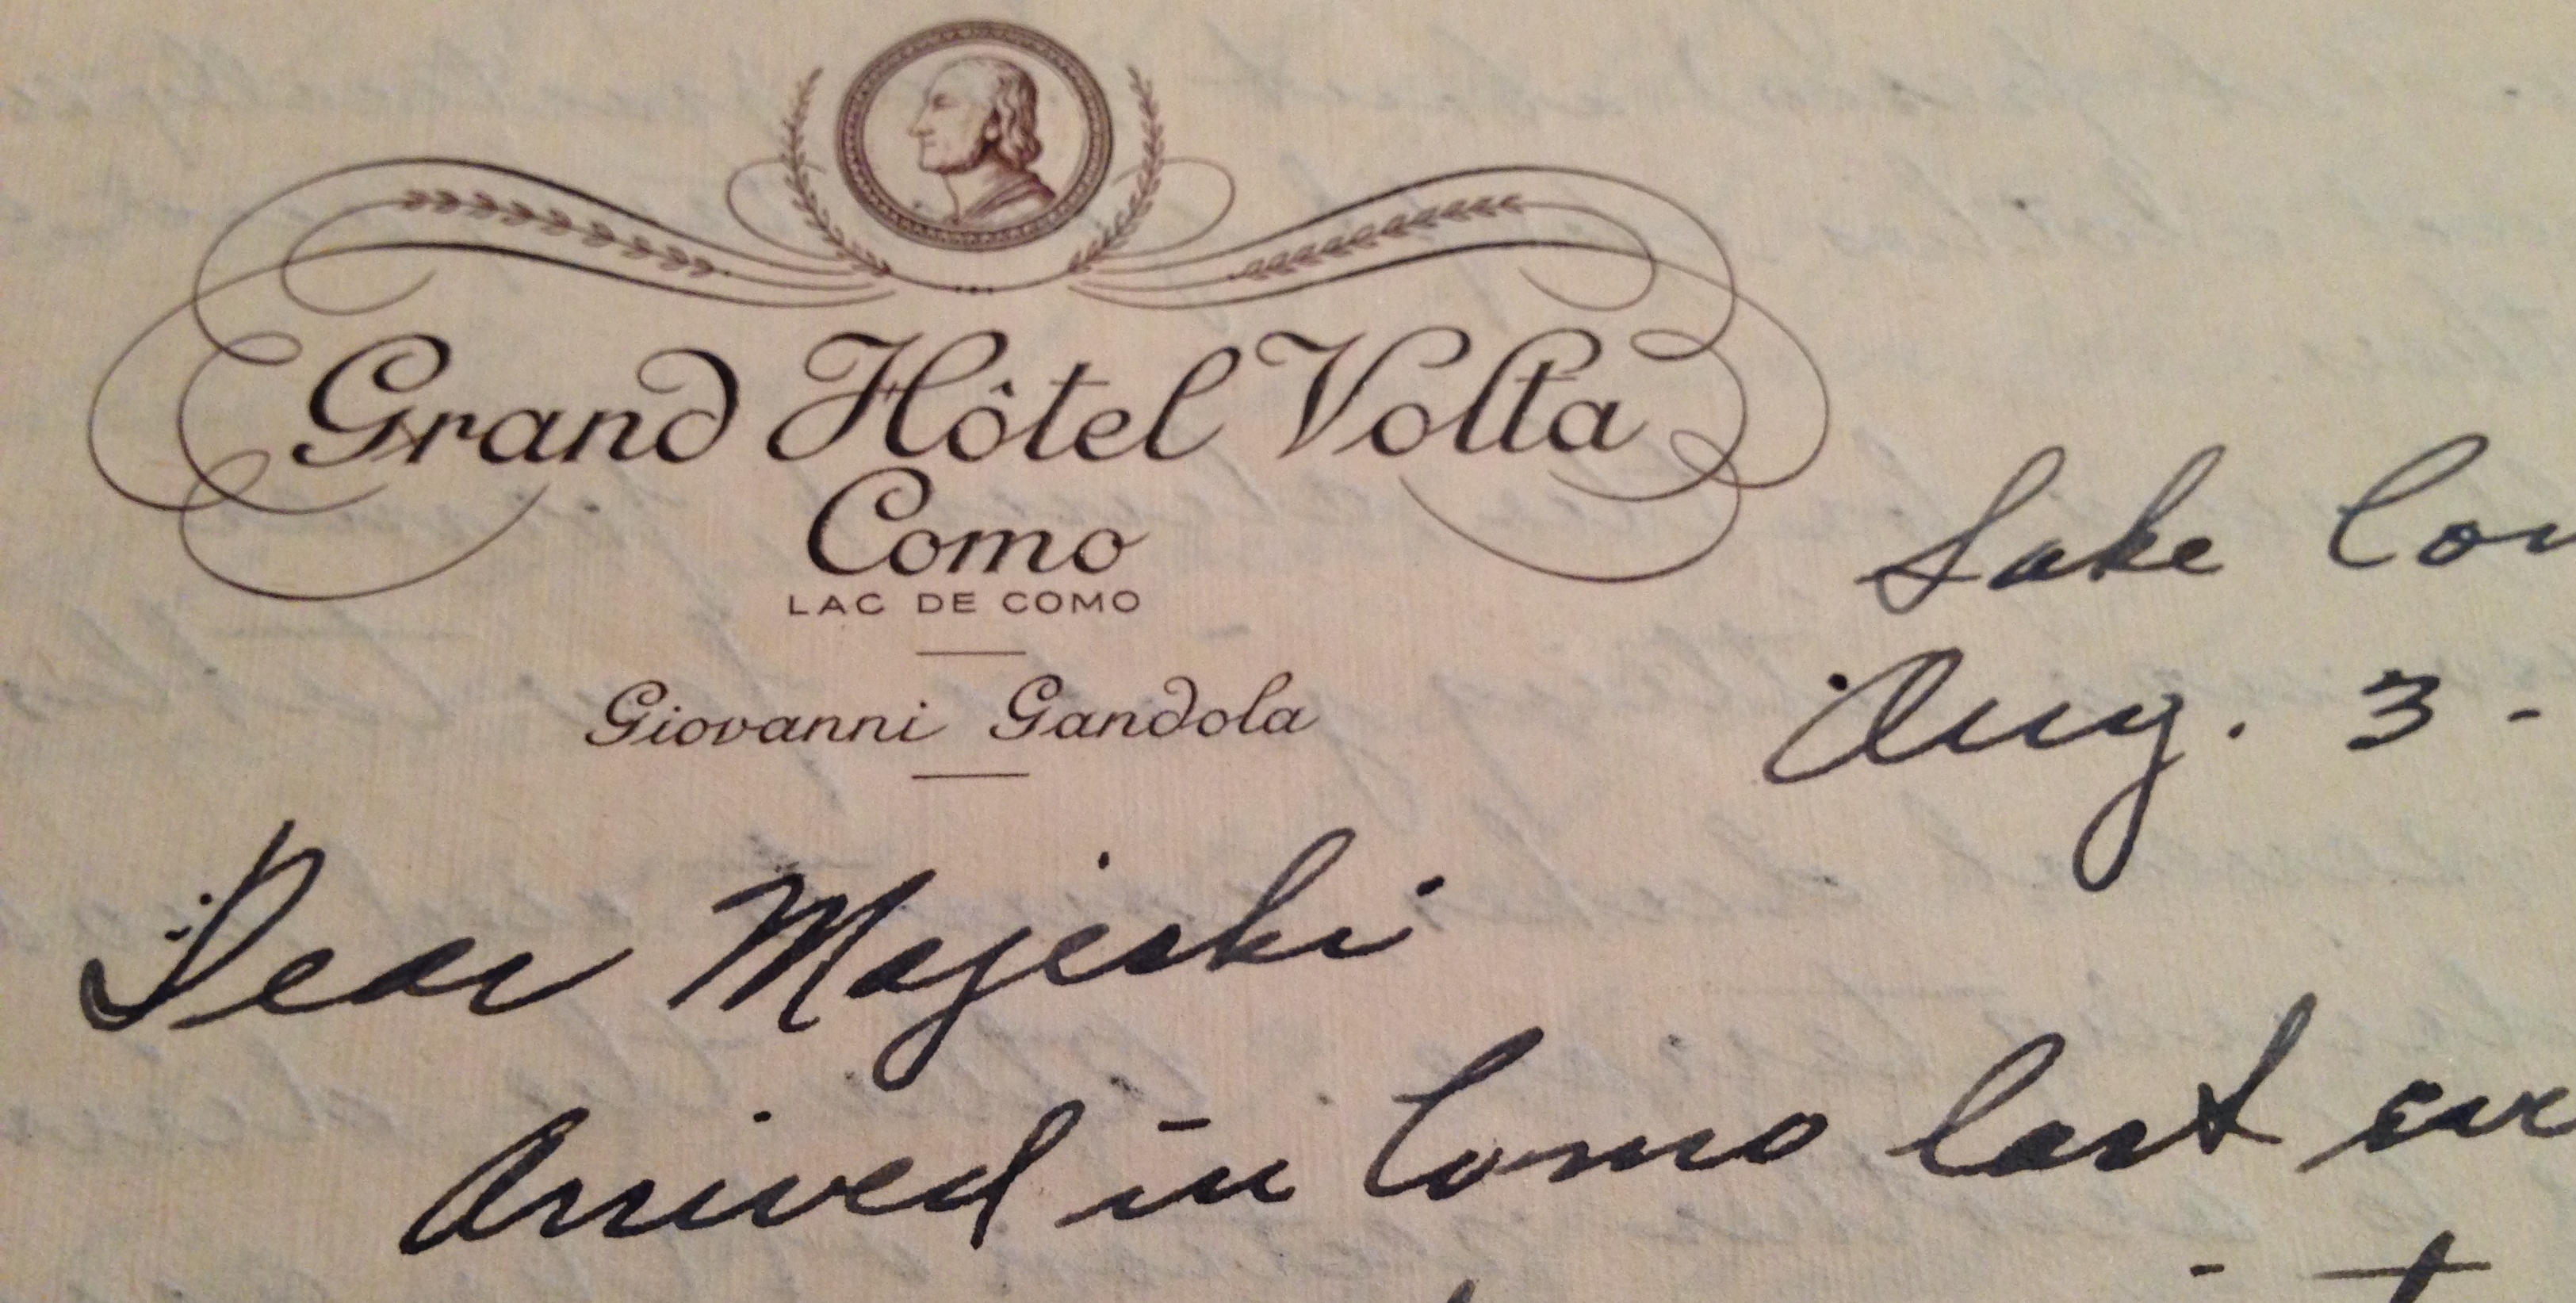 Grand Hôtel Volta
Como
LAC DE COMO
Giovanni Gandola
Lake Com
Aug. 3 -
Dear Majeski
Arrived in Como last eve